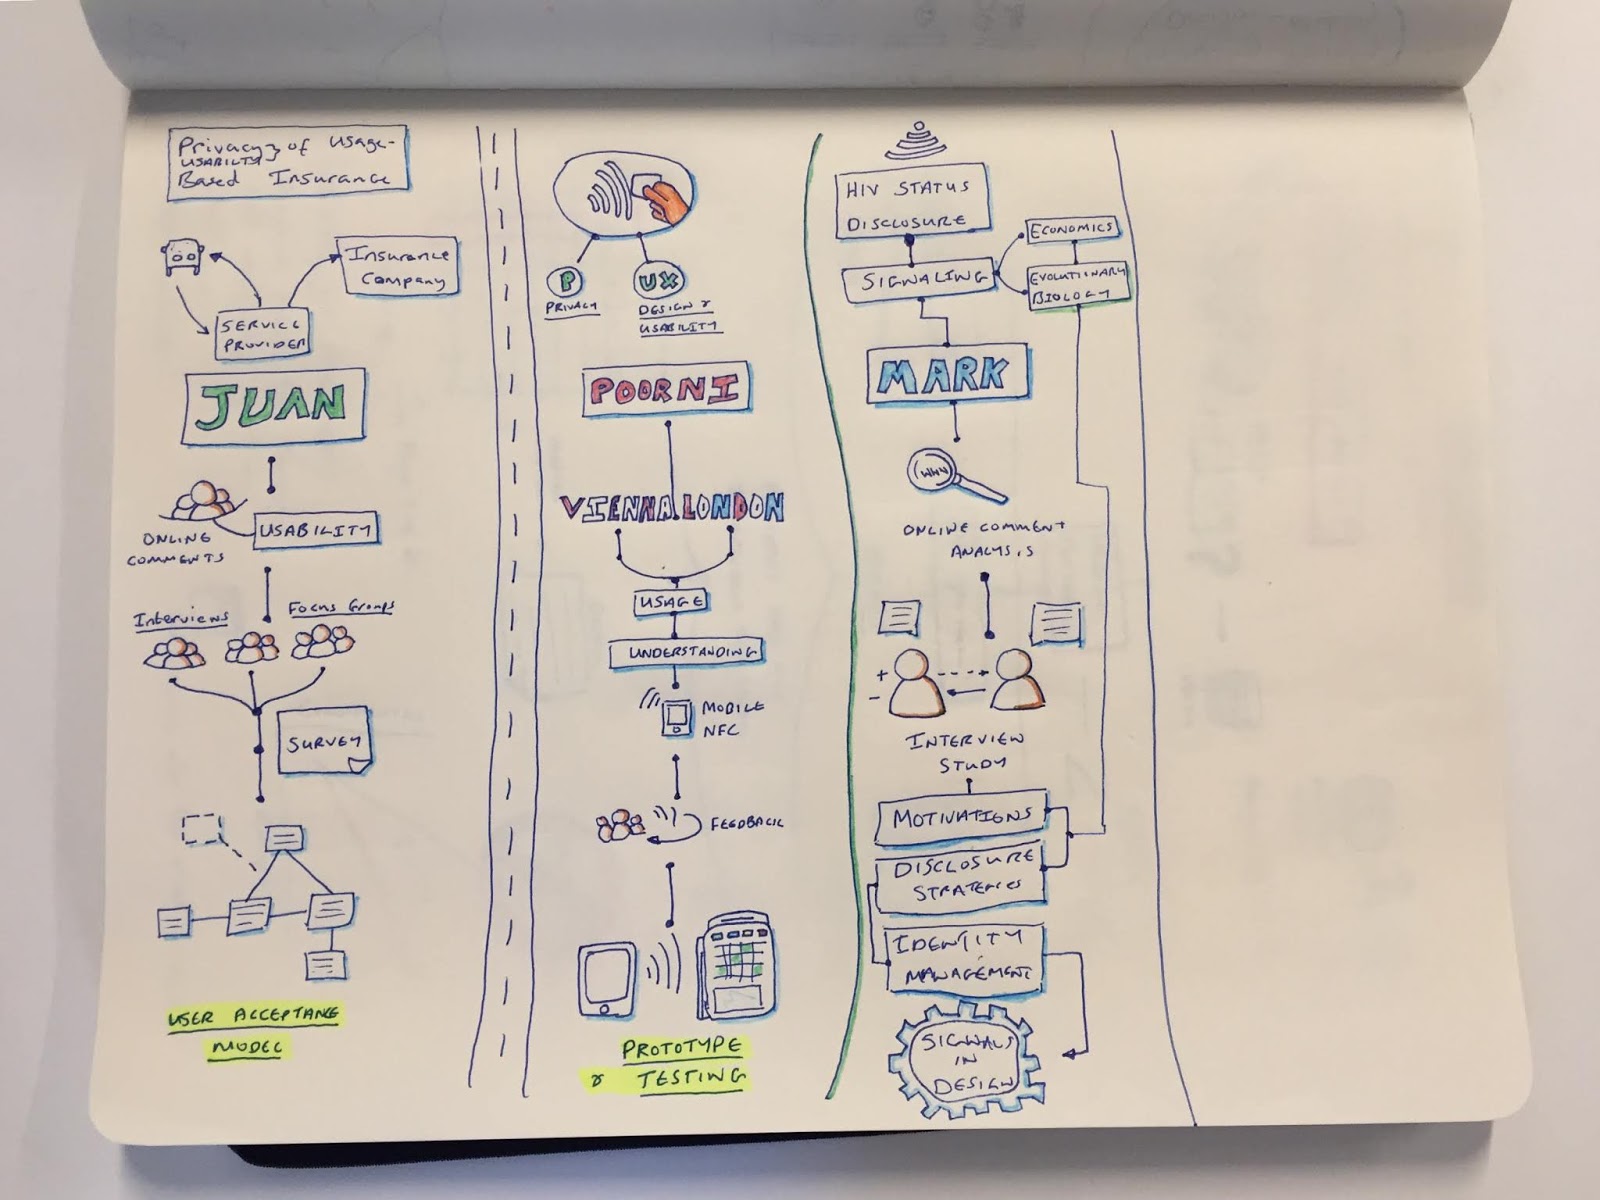 Privacy } of Usage-
USABILTY
Based Insurance
Insurance
Company
SERVICE
PROVIDER
JUAN
ONLINE
COMMENTS
USABILITY
Interviews
Focus Groups
SURVEY
USER ACCEPTANCE
MODEL
P
PRIVACY
UX
DESIGN &
USABILITY
POORNI
VIENNA LONDON
USAGE
UNDERSTANDING
MOBILE
NFC
FEEDBACK
PROTOTYPE
& TESTING
HIV STATUS
DISCLOSURE
SIGNALING
ECONOMICS
EVOLUTIONARY
BIOLOGY
MARK
WWW
ONLINE COMMENT
ANALYSIS
+
-
INTERVIEW
STUDY
MOTIVATIONS
DISCLOSURE
STRATEGIES
IDENTITY
MANAGEMENT
SIGNALS
IN
DESIGN